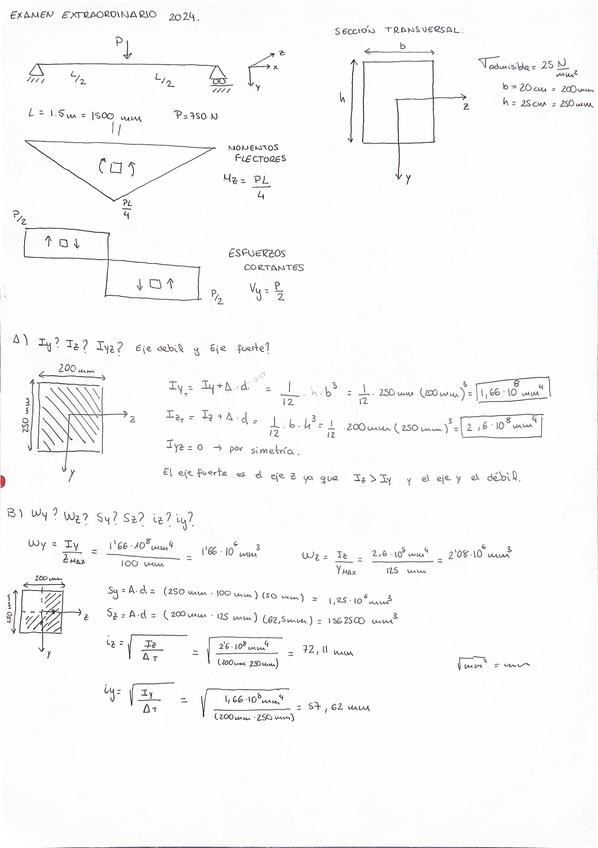 EXAMEN EXTRAORDINARIO 2024.
P
L/2 L/2
z
x
y
L = 1.5m = 1500 mm P=750 N
MOMENTOS
FLECTORES
Mz = PL/4
PL/4
P/2
P/2
ESFUERZOS
CORTANTES
Vy = P/2
SECCIÓN TRANSVERSAL:
b
h
z
y
σadmisible = 25 N/mm²
b = 20cm = 200mm
h = 25cm = 250mm
A) Iy? Iz? Iyz? Eje debil y Eje fuerte?
200 mm
250 mm
z
y
IyT = Iy + A·d = 1/12 · h · b³ = 1/12 · 250 mm (200 mm)³ = 1,66·10⁸ mm⁴
IzT = Iz + A·d = 1/12 · b · h³ = 1/12 · 200mm (250 mm)³ = 2,6·10⁸ mm⁴
Iyz = 0 → por simetría.
El eje fuerte es el eje z ya que Iz > Iy y el eje y el débil.
B) Wy? Wz? Sy? Sz? iz? iy?
Wy = Iy/ZMAX = 1'66·10⁸ mm⁴/100 mm = 1'66·10⁶ mm³
Wz = Iz/YMAX = 2,6·10⁸ mm⁴/125 mm = 2'08·10⁶ mm³
200 mm
250 mm
z
y
Sy = A·d = (250 mm · 100 mm) (50 mm) = 1,25·10⁶ mm³
Sz = A·d = (200 mm · 125 mm) (62,5mm) = 1562500 mm³
iz = √(Iz/AT) = √(2'6·10⁸ mm⁴/(200mm 250mm)) = 72,11 mm
√mm² = mm
iy = √(Iy/AT) = √(1,66·10⁸ mm⁴/(200mm · 250 mm)) = 57,62 mm